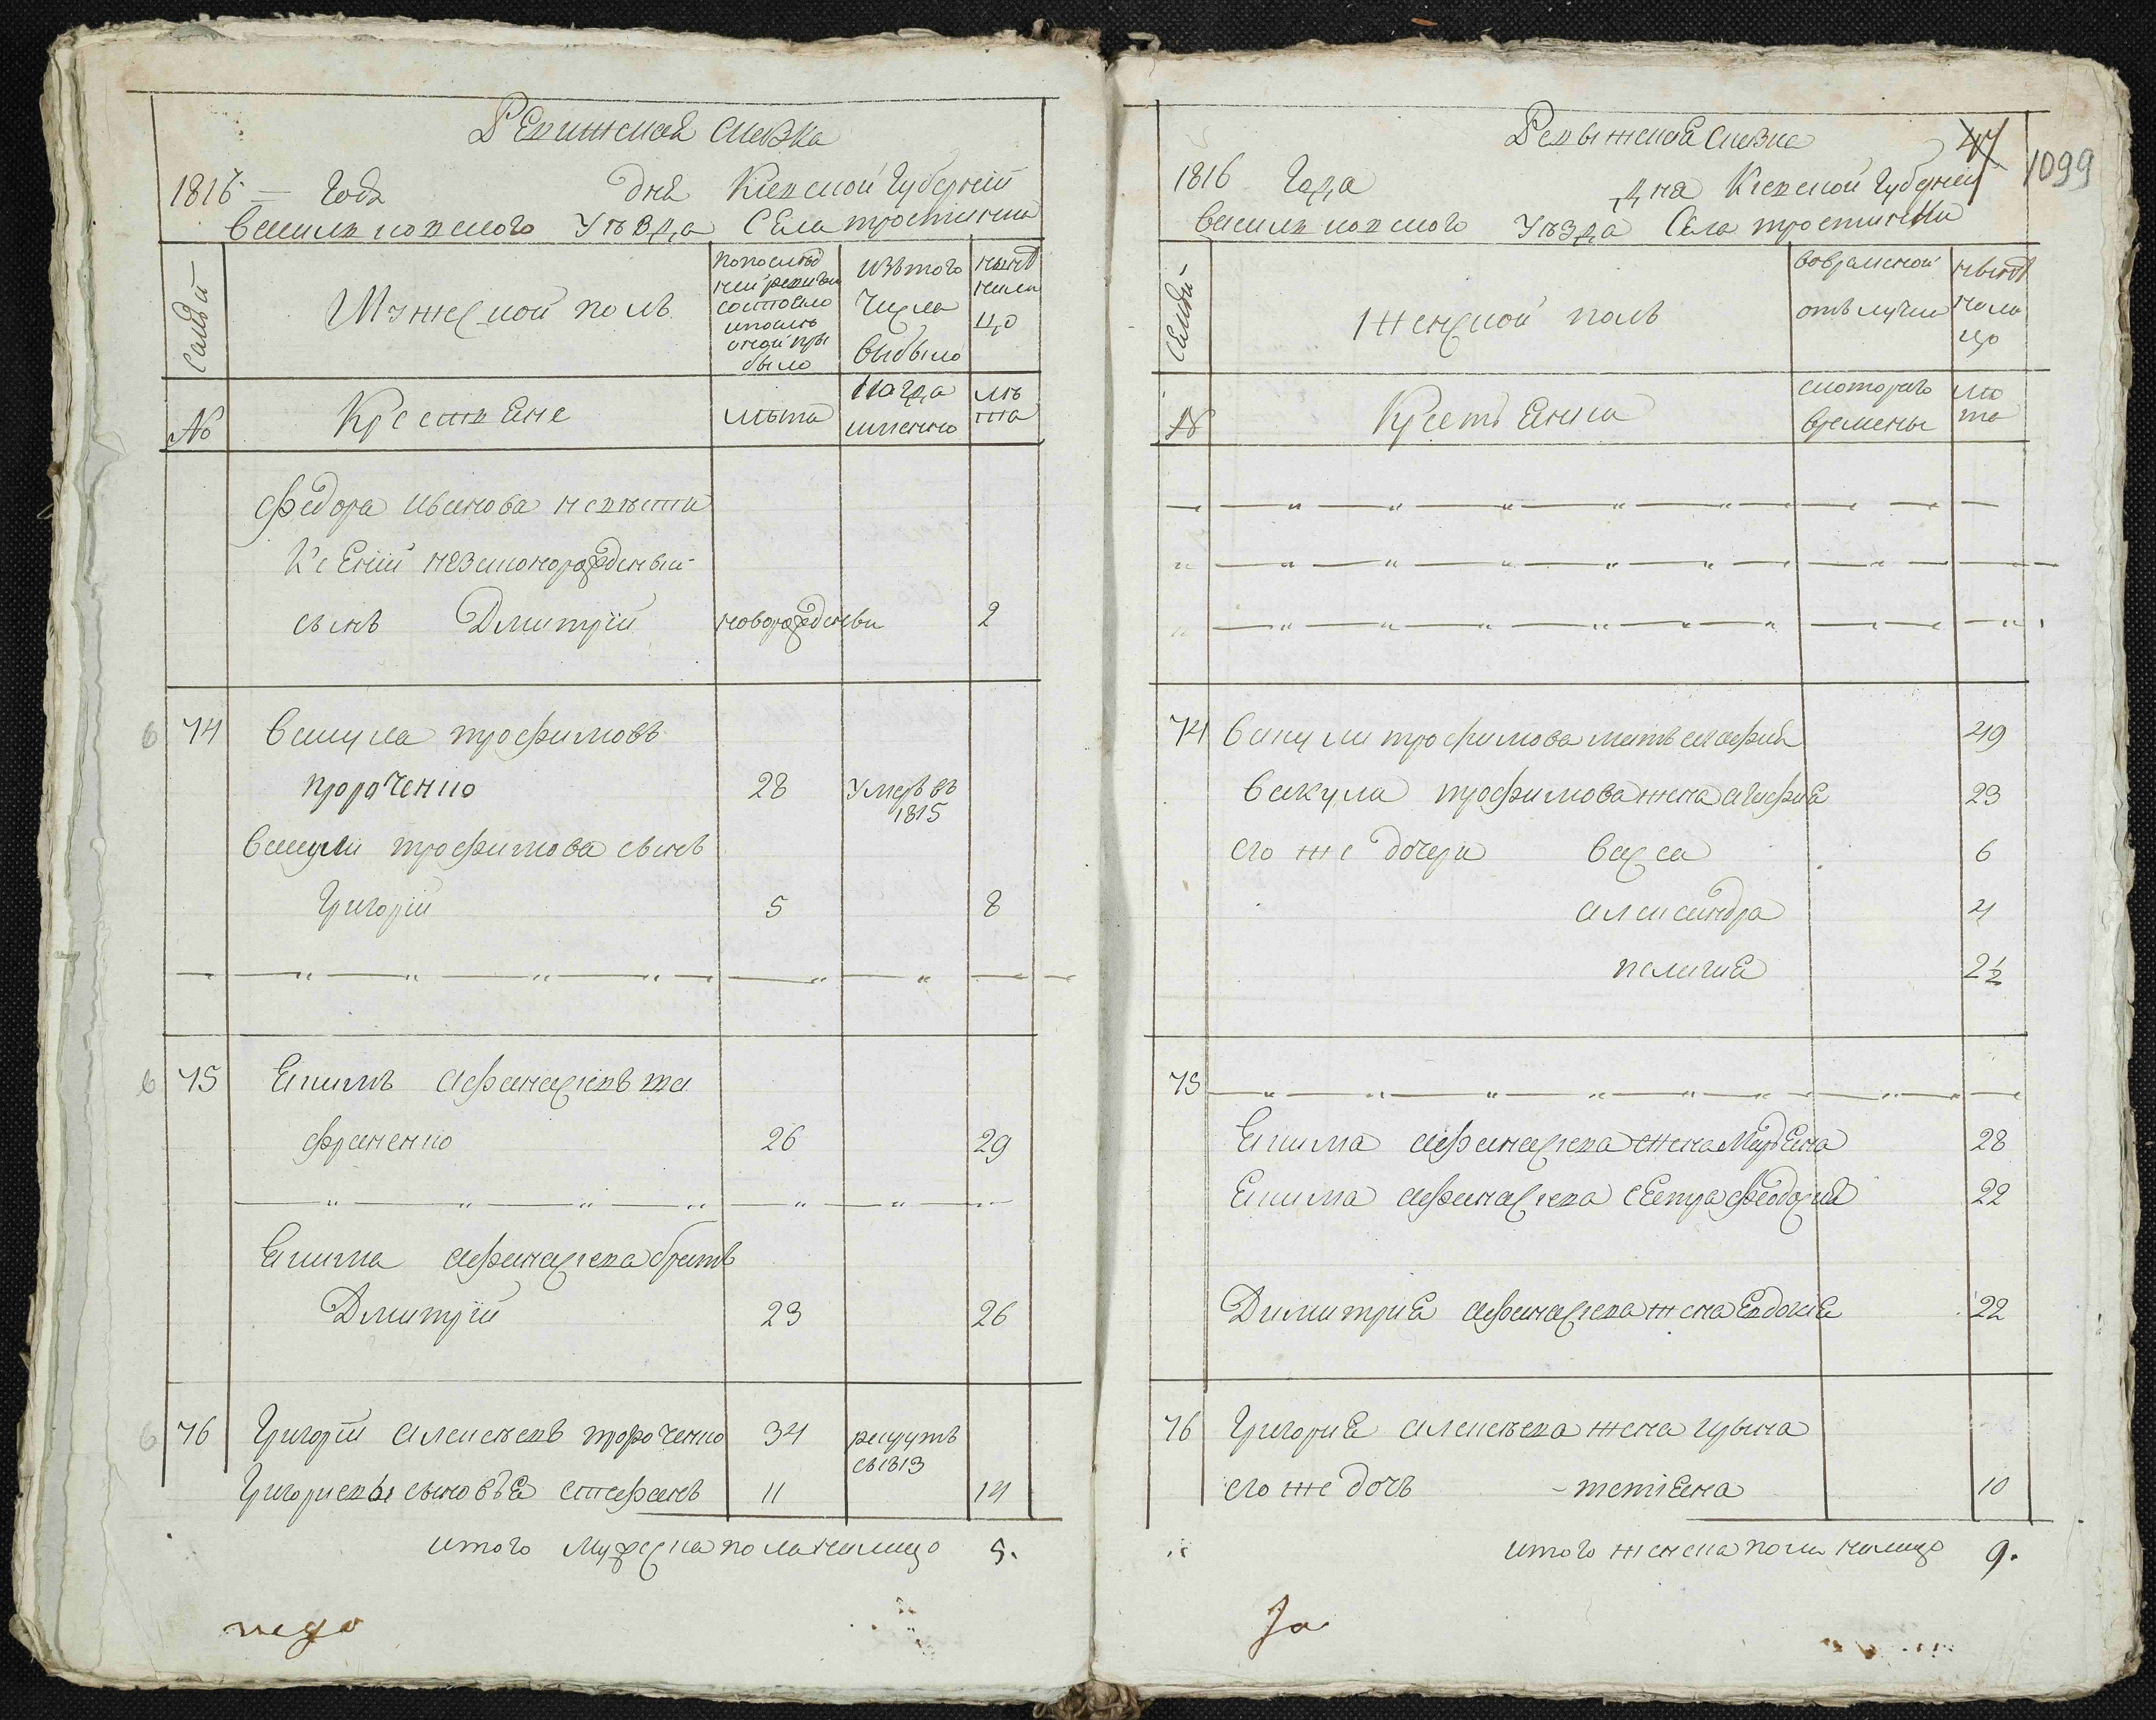 Ревижская сказка
1816 года дня Киевской губерний
Василковского уезда Села тростинки
Семьи
Мужеской полъ
попоследней ревизии состояло ипосле оной прыбыло
изътого числа выбыло
ныне налицо
№
Крестяне
лета
Когда именно
лета
Федора иванова невестки
Ксений незаконорожденый
сынъ Дмитрий новорожденый 2
74 вакула трофимовъ
прораченко 28 умеръ въ
1815
вакули трофимова сынъ
Григорий 5 8
75 Екимъ афанасиевъ та
франенко 26 29
Екима афанасиева братъ
Дмитрий 23 26
76 Григорий алексеевъ прораченко 34 рекрутъ
съ1813
Григориевы сыновья стефанъ 11 14
итого мужеска пола налицо 5.
1099
Ревыжская сказка
1816 Года дня Киевской губерний
василковского уезда Села тростинки
Семьи
Женской полъ
вовременой отълучки
ныне налицо
№
Крестьянка
скоторого времены
лета
74 вакули трофимова мать агафия 49
вакула трофимова жена агафия 23
его же дочери васса 6
александра 4
пелагия 2½
75
Екима афанасиева жена Марьяна 28
Екима афанасиева сестра феодосия 22
Димитрия афанасиева жена Евдокия 22
76 Григория алексеева жена ирына
его же дочь – тетiяна 10
итого женска пола налицо 9.